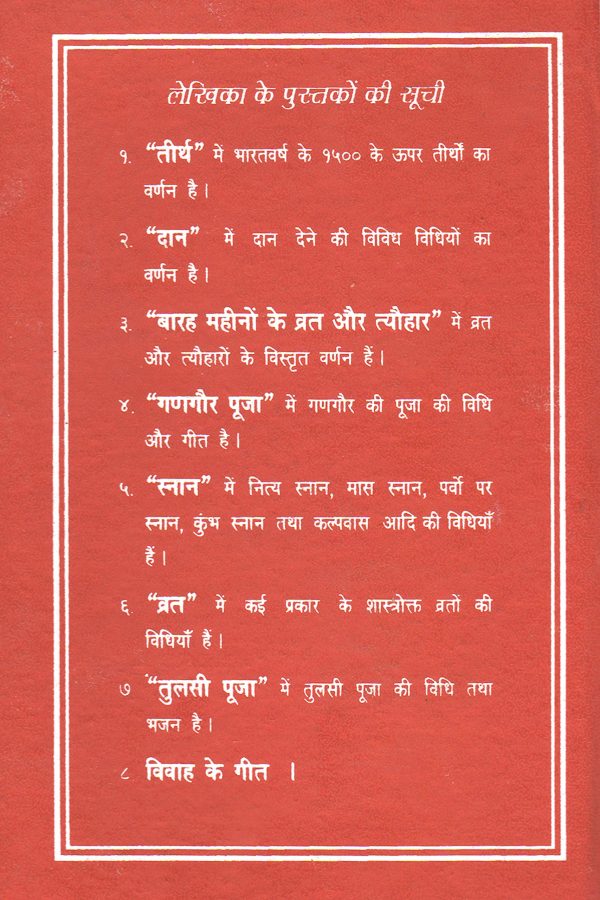 लेखिका के पुस्तकों की सूची
१. “तीर्थ” में भारतवर्ष के १५०० के ऊपर तीर्थों का
वर्णन है।
२. “दान” में दान देने की विविध विधियों का
वर्णन है।
३. “बारह महीनों के व्रत और त्यौहार” में व्रत
और त्यौहारों के विस्तृत वर्णन हैं।
४. “गणगौर पूजा” में गणगौर की पूजा की विधि
और गीत है।
५. “स्नान” में नित्य स्नान, मास स्नान, पर्वो पर
स्नान, कुंभ स्नान तथा कल्पवास आदि की विधियाँ
हैं।
६. “व्रत” में कई प्रकार के शास्त्रोक्त व्रतों की
विधियाँ हैं।
७ “तुलसी पूजा” में तुलसी पूजा की विधि तथा
भजन है।
८ विवाह के गीत ।